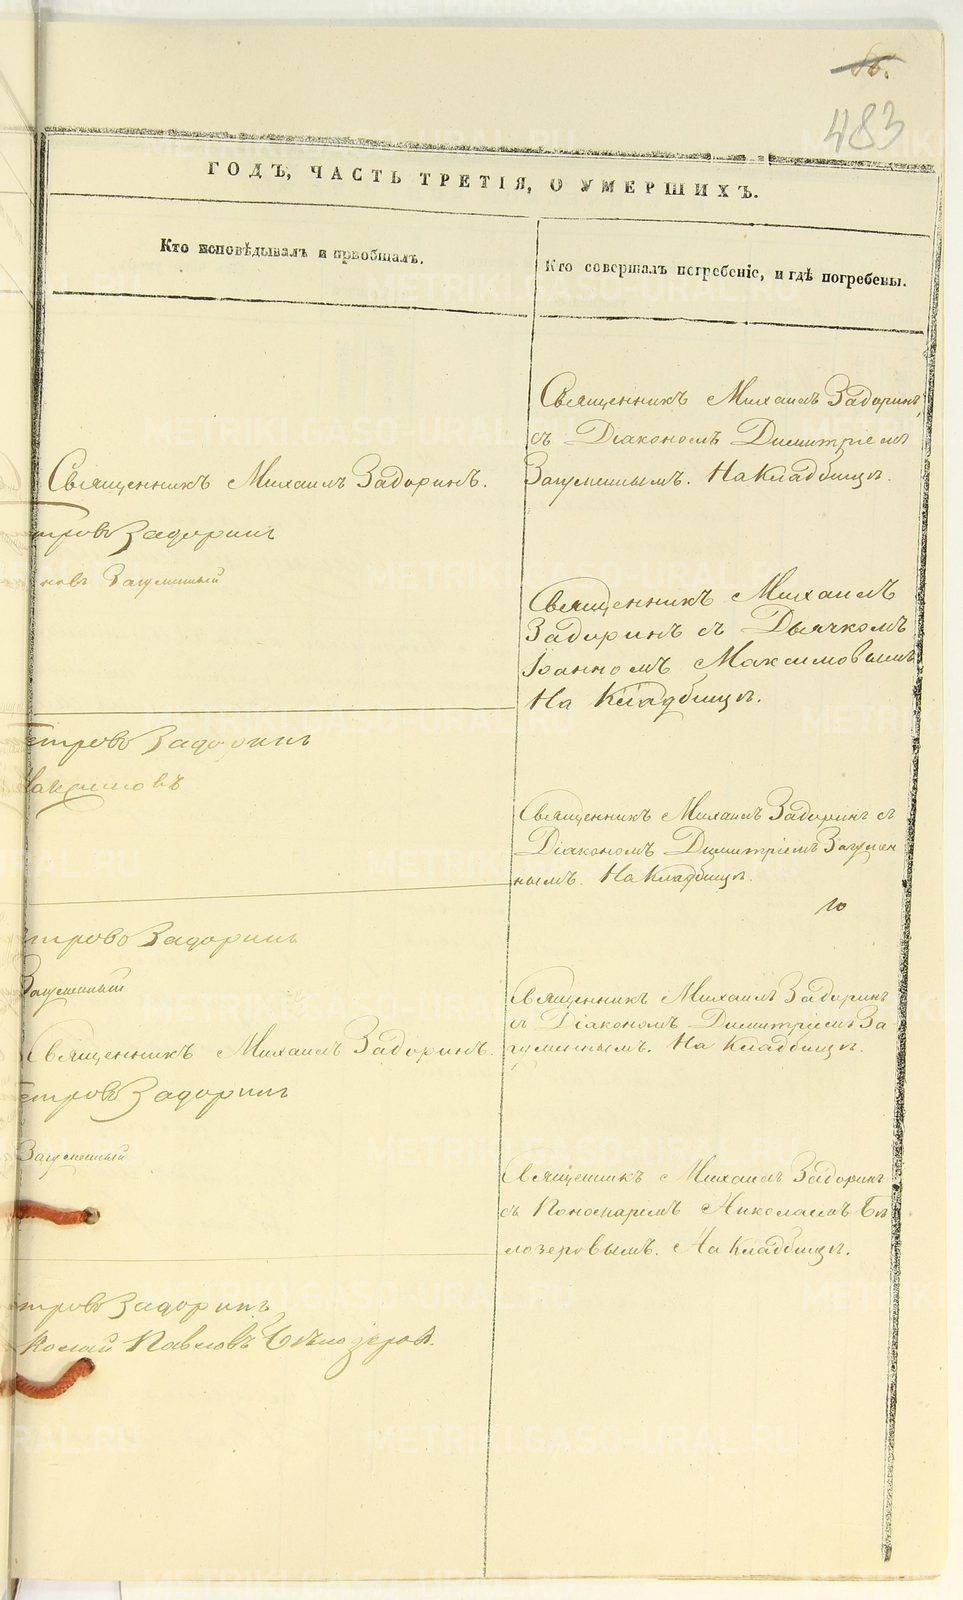 483
ГОДЪ, ЧАСТЬ ТРЕТІЯ, О УМЕРШИХЪ.
Кто исповѣдывалъ и пріобщалъ.
Кто совершалъ погребеніе, и гдѣ погребены.
Священникъ Михаилъ Задоринъ
съ Діакономъ Димитріемъ
Загуменнымъ. На Кладбищѣ.
Священникъ Михаилъ Задоринъ.
тровъ Задоринъ
новъ Загуменный
Священникъ Михаилъ
Задоринъ съ Дьячкомъ
Іоанномъ Максимовымъ
На Кладбищѣ.
етровъ Задоринъ
Максимовъ
Священникъ Михаилъ Задоринъ съ
Діакономъ Димитріемъ Загумен
нымъ. На Кладбищѣ.
10
тровъ Задоринъ
Загуменный
Священникъ Михаилъ Задоринъ
съ Діакономъ Димитріемъ За
гуменнымъ. На Кладбищѣ.
Священникъ Михаилъ Задоринъ.
етровъ Задоринъ
Загуменный
Священникъ Михаилъ Задоринъ
съ Пономаремъ Николаемъ Бѣ
лозеровымъ. На Кладбищѣ.
тровъ Задоринъ
колай Павловъ Бѣлозеровъ.
METRIKI.GASO-URAL.RU